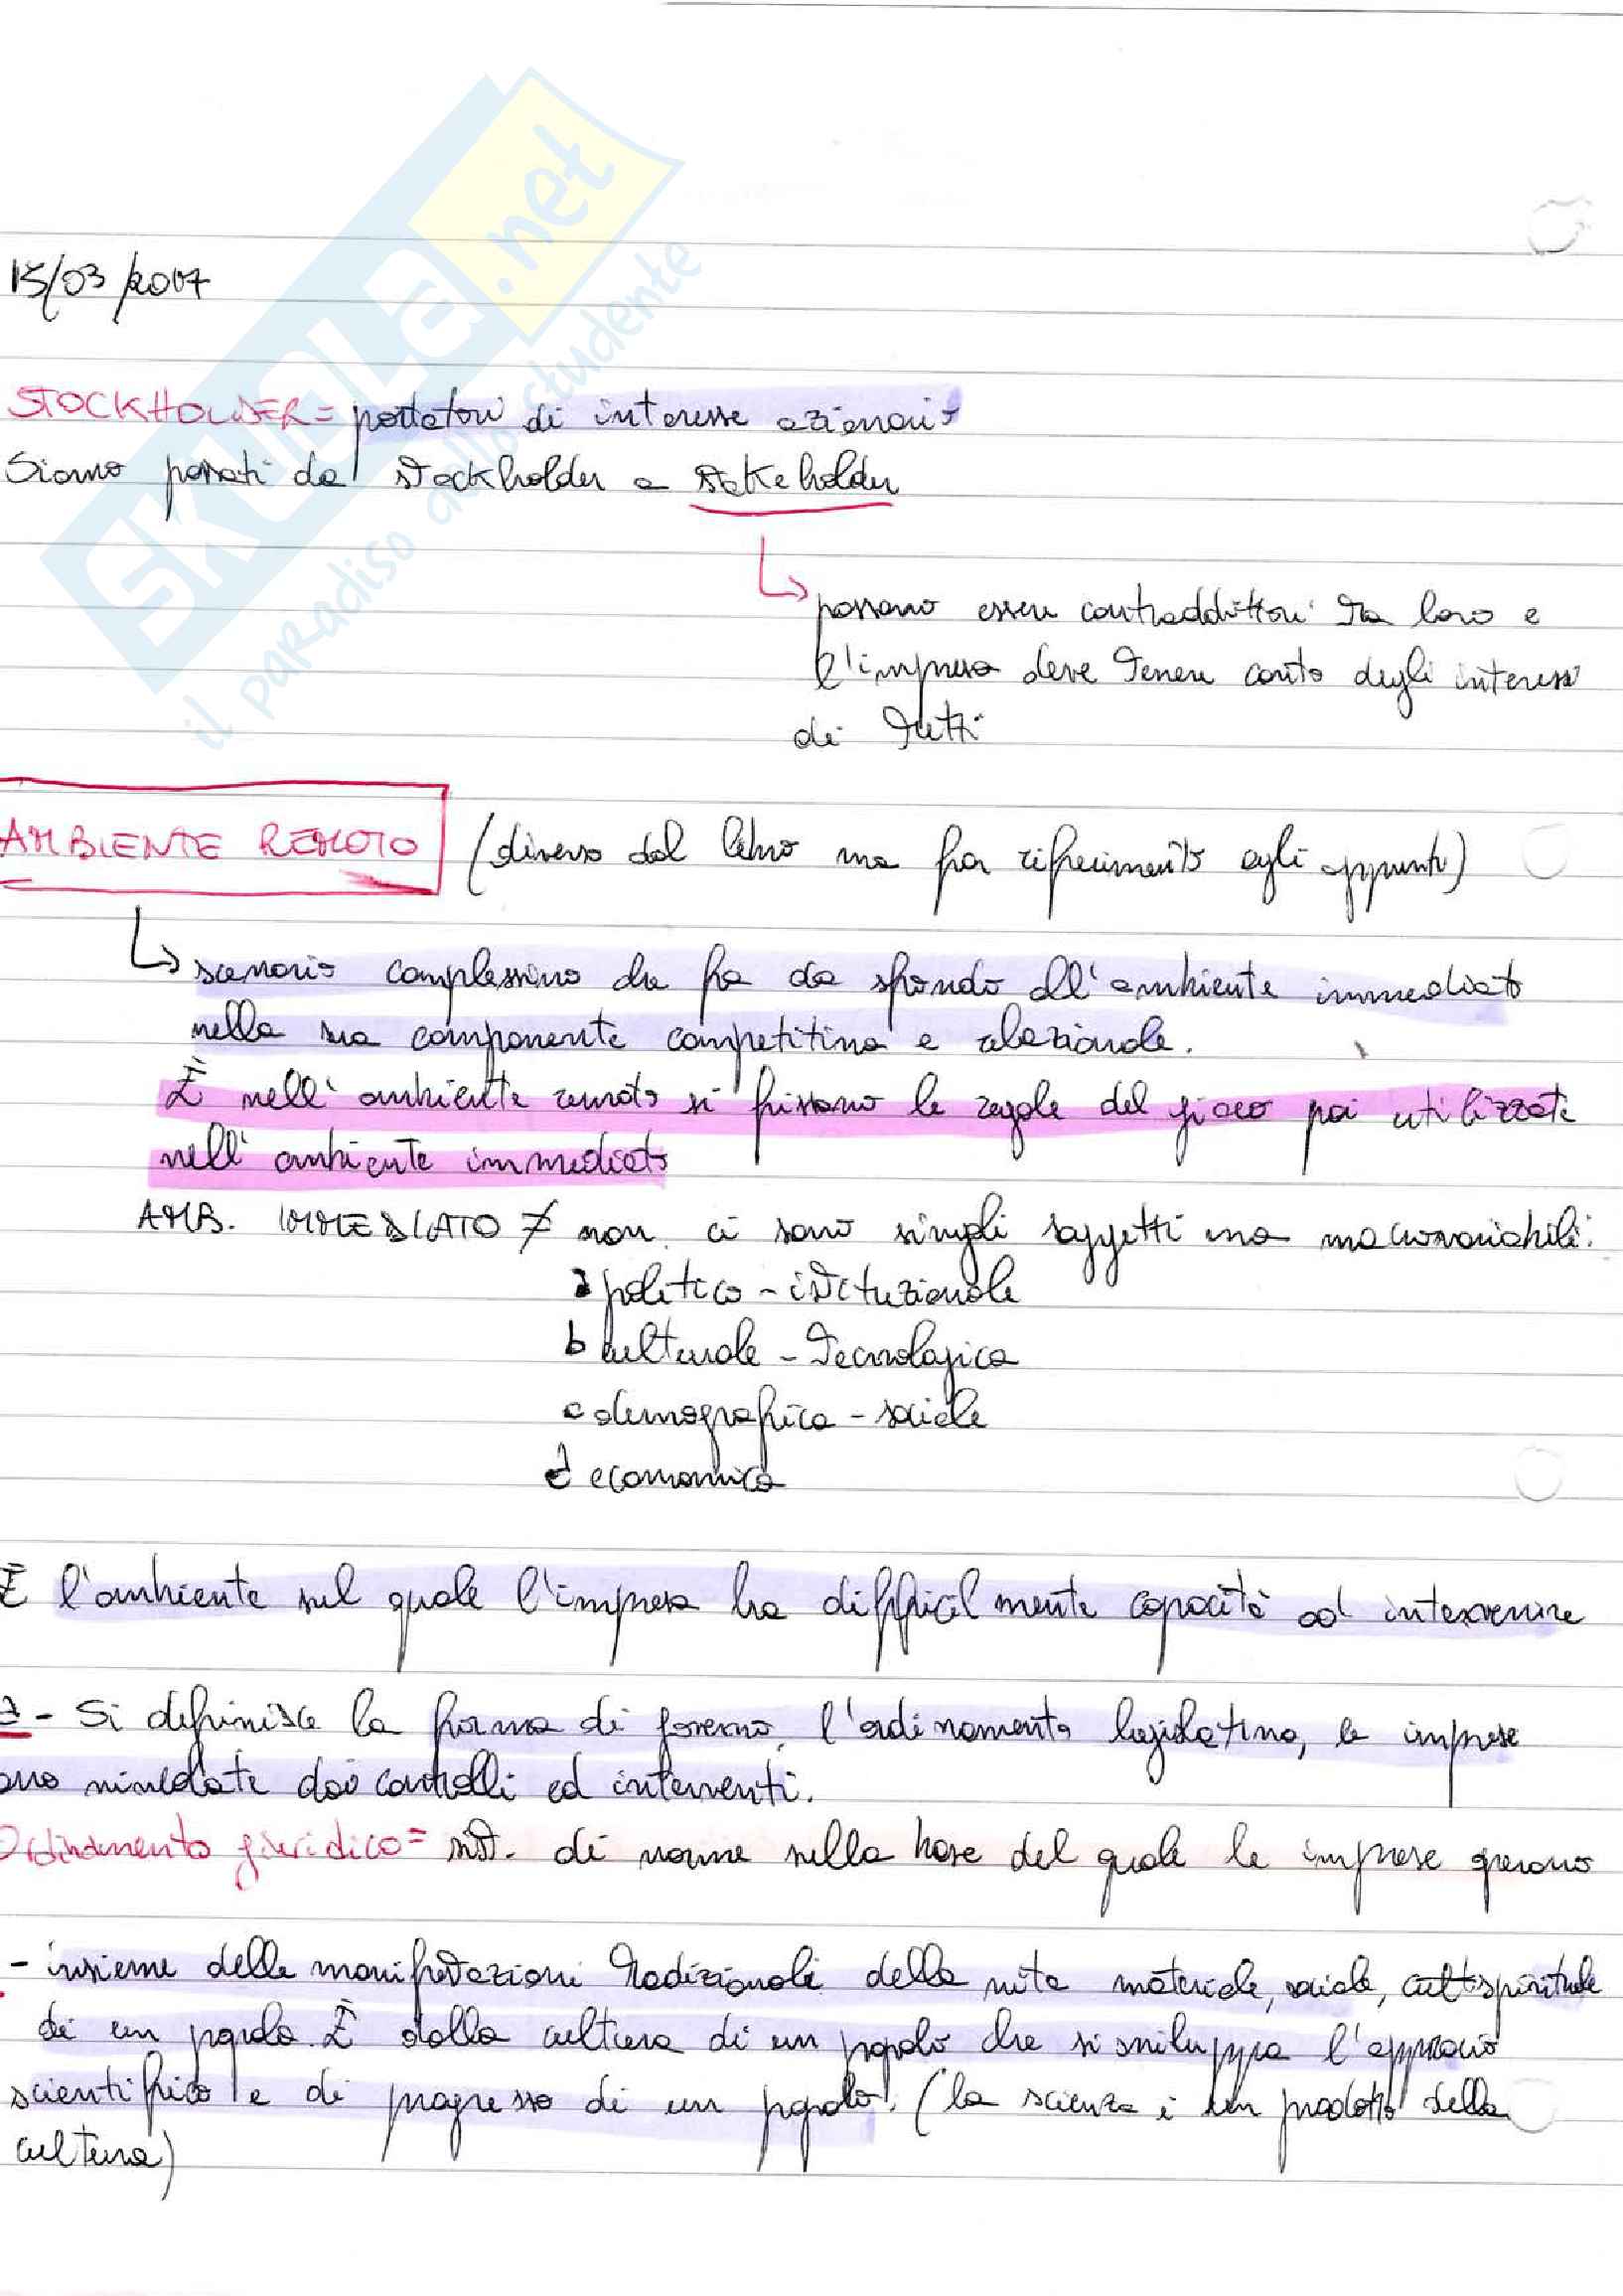 SKUOLA.net
il paradiso dello studente
15/03/2007
STOCKHOLDER = portatori di interesse azionario
Siamo passati da stockholder a stakeholder
possono essere contraddittori tra loro e
l'impresa deve tenere conto degli interessi
di tutti
AMBIENTE REMOTO (diverso dal libro ma far riferimento agli appunti)
scenario complessivo che fa da sfondo all'ambiente immediato
nella sua componente competitiva e relazionale.
È nell'ambiente remoto si fissano le regole del gioco poi utilizzate
nell'ambiente immediato
AMB. IMMEDIATO ≠ non ci sono singoli soggetti ma macrovariabili:
a politico - istituzionale
b culturale - tecnologica
c demografica - sociale
d economica
È l'ambiente sul quale l'impresa ha difficilmente capacità ad intervenire
a - Si definisce la forma di governo, l'ordinamento legislativo, le imprese
sono vincolate dai controlli ed interventi.
Ordinamento giuridico = sist. di norme sulla base del quale le imprese operano
- insieme delle manifestazioni tradizionali della vita materiale, sociale, spirituale
di un popolo. È dalla cultura di un popolo che si sviluppa l'approccio
scientifico e di progresso di un popolo. (la scienza è un prodotto della
cultura)